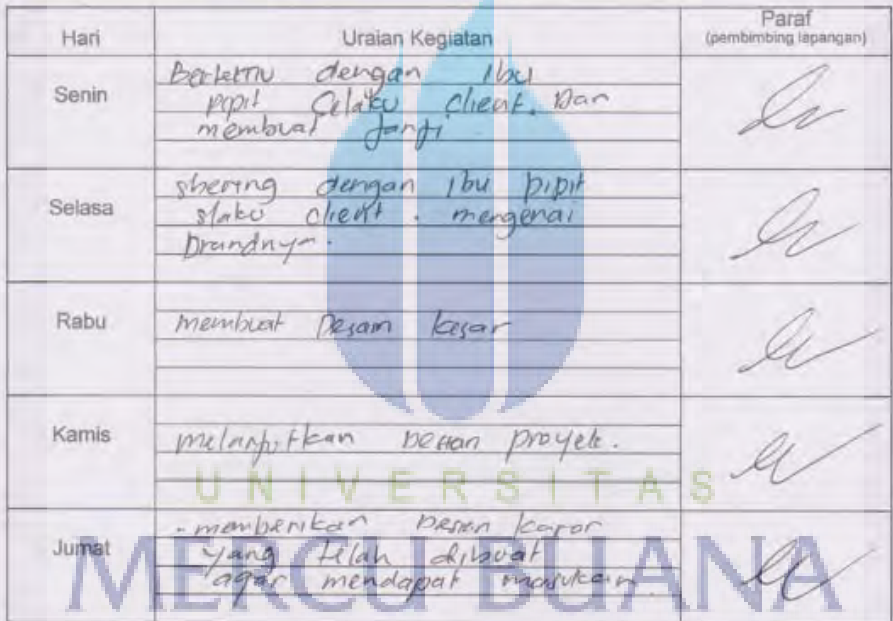 Hari Uraian Kegiatan Paraf
(pembimbing lapangan)
Senin
Bertemu dengan Ibu
pipit Selaku client. Dan
membuat janji
Selasa
shering dengan Ibu pipit
slaku client. mengenai
Brandnya.
Rabu
membuat Desain kasar
Kamis
melanjutkan Desain proyek.
UNIVERSITAS
Jumat
- memberikan Desain kasar
yang telah dibuat
agar mendapat masukan
MERCU BUANA